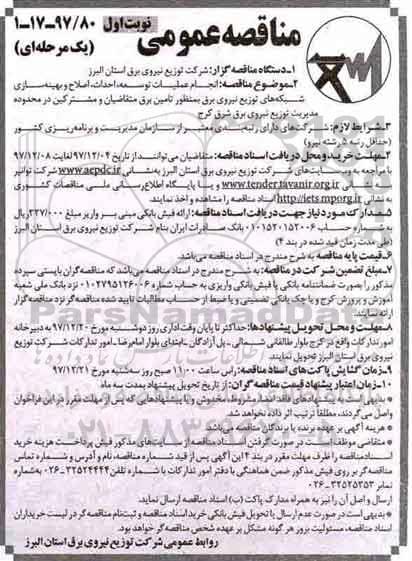 نوبت اول
۱-۱۷-۹۷/۸۰
(یک مرحله‌ای)
مناقصه عمومی
۱-دستگاه مناقصه گزار: شرکت توزیع نیروی برق استان البرز
۲-موضوع مناقصه: انجام عملیات توسعه، احداث، اصلاح و بهینه‌سازی
شبکه‌های توزیع نیروی برق بمنظور تامین برق متقاضیان و مشترکین در محدوده
مدیریت توزیع نیروی برق شرق کرج
۳-شرایط لازم: شرکت‌های دارای رتبه‌بندی معتبر از سازمان مدیریت و برنامه‌ریزی کشور
(حداقل رتبه ۵ رشته نیرو)
۴-مهلت خرید و محل دریافت اسناد مناقصه: متقاضیان می‌توانند از تاریخ ۹۷/۱۲/۰۴ لغایت ۹۷/۱۲/۰۸
با مراجعه به وب‌سایت‌های شرکت توزیع نیروی برق استان البرز به‌نشانی www.aepdc.ir شرکت توانیر
به نشانی www.tender.tavanir.org.ir و یا پایگاه اطلاع‌رسانی ملی مناقصات کشوری
به نشانی http://iets.mporg.ir اسناد مناقصه را مشاهده و اخذ نمایند.
۵-مدارک مورد نیاز جهت دریافت اسناد مناقصه: ارائه فیش بانکی مبنی بر واریز مبلغ ۳۲۷/۰۰۰ ریال
به شماره حساب ۰۱۰۱۵۲۰۱۵۲۰۰۶ بانک صادرات ایران بنام شرکت توزیع نیروی برق استان البرز
(طی مدت زمان قید شده در بند ۴)
۶-قیمت پایه مناقصه به شرح مندرج در اسناد مناقصه می‌باشد.
۷-مبلغ تضمین شرکت در مناقصه: به شرح مندرج در اسناد مناقصه می‌باشد که مناقصه‌گران بایستی سپرده
مذکور را بصورت ضمانتنامه بانکی یا فیش بانکی واریزی به حساب شماره ۰۱۰۲۷۹۵۱۲۶۰۰۶ نزد بانک ملی شعبه
آموزش و پرورش کرج و یا چک بانکی تضمینی و یا ضبط از حساب مطالبات تایید شده مناقصه‌گر نزد مناقصه گزار
ارائه نمایند.
۸-مهلت و محل تحویل پیشنهادها: حداکثر تا پایان وقت اداری روز دوشنبه مورخ ۹۷/۱۲/۲۰ به دبیرخانه
امور تدارکات واقع در کرج بلوار طالقانی شمالی- پل آزادگان -ابتدای بلوار امام رضا -امور تدارکات شرکت توزیع
نیروی برق استان البرز تحویل نمایند.
۹-زمان گشایش پاکت‌های اسناد مناقصه: راس ساعت ۱۱:۰۰ صبح روز سه‌شنبه مورخ ۹۷/۱۲/۲۱
۱۰-زمان اعتبار پیشنهاد قیمت مناقصه‌گران: از تاریخ تحویل پیشنهاد بمدت سه ماه
* بدیهی است به پیشنهادهای فاقد امضا، مشروط، مخدوش و یا پیشنهادهایی که پس از مهلت مقرر در این فراخوان
واصل می‌گردند، مطلقا ترتیب اثر داده نخواهد شد.
* هزینه آگهی بر عهده برنده یا برندگان مناقصه می‌باشد.
* متقاضی موظف است در صورت گرفتن اسناد مناقصه از سایت‌های مذکور فیش پرداخت هزینه خرید
اسناد مناقصه را ظرف مهلت مقرر در بند ۴ این آگهی پس از قید شماره مناقصه، نام و آدرس و شماره تماس
مناقصه‌گر بر روی فیش مذکور ضمن هماهنگی با دفتر امور تدارکات با شماره تلفن ۳۲۵۲۴۴۴۴-۰۲۶ به‌شماره
نمابر ۳۲۵۲۵۳۵۳-۰۲۶
ارسال و اصل آن را نیز به همراه مدارک پاکت (ب) اسناد مناقصه ارسال نماید.
* بدیهی است در صورت عدم ارسال یا تحویل فیش بانکی خرید اسناد مناقصه و ثبت‌نام مناقصه گر در لیست خریداران
اسناد مناقصه، مسئولیت بروز هر گونه مشکل بر عهده شخص مناقصه‌گر خواهد بود.
روابط عمومی شرکت توزیع نیروی برق استان البرز
ParsNamadData